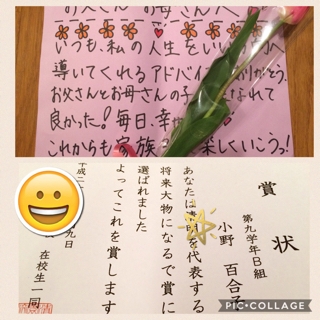 お父さん お母さんへ
いつも、私の人生をいい
導いてくれるアドバイス ありがとう。
お父さんとお母さんの子 なれて
良かった!毎日、幸
これからも家族 楽しくいこうっ!
賞状
第九学年B組
小野 百合子
あなたは を代表する
将来大物になるで賞に
選ばれました
よってこれを賞します
平成二 九日
在校生一同
PIC•COLLAGE